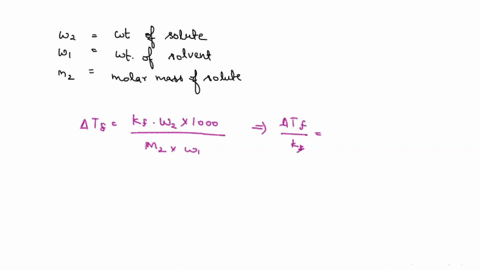 w₂ = wt of solute
w₁ = wt. of solvent
M₂ = molar mass of solute
ΔT_f = (k_f · w₂ × 1000) / (M₂ × w₁) ⇒ ΔT_f / k_f =